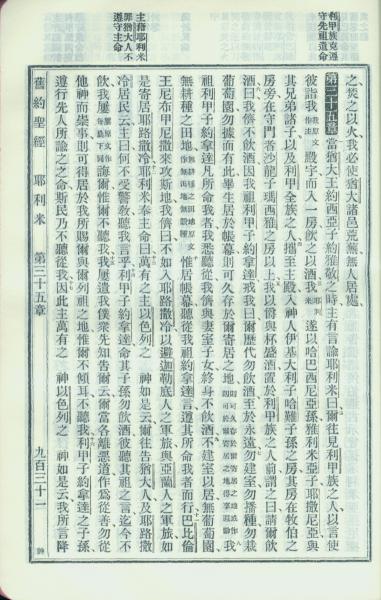 利甲族克遵
守先祖遺命
主藉耶利米
罪猶大人不
遵守主命
之焚之以火我必使猶大諸邑荒蕪無人居處
第三十五章當猶大王約西亞子約雅敬之時主有言諭耶利米曰爾往見利甲族之人以言使
彼詣我我原文作主殿宇而入一房飲之以酒我耶利米遂以哈巴西尼亞孫雅利米亞子耶撒尼亞與
其兄弟諸子以及利甲全族之人攜至主殿入神人伊基大利子哈難子孫之房其房在牧伯之
房旁在守門者沙龍子瑪西雅之房以上我以爵與杯盛酒置於利甲族人前謂之曰請爾飲
酒曰我儕不飲酒因我祖利甲子約拿達戒我曰爾歷代勿飲酒至於永遠勿建室勿播種勿栽
葡萄園勿據而有此畢生居於帳幕則可久存於爾寄居之地我
祖利甲子約拿達凡所命我者我悉聽從我儕與妻室子女終身不飲酒不建室以居無葡萄園
無耕種之田地惟居帳幕聽從我祖約拿達言遵其所命我者而行巴比倫
王尼布甲尼撒來攻斯地我儕曰不如入耶路撒冷以避迦勒底人之軍旅與亞蘭人之軍旅如
是寄居耶路撒冷耶利米奉主命曰萬有之主以色列之 神如是云爾往告猶大人及耶路撒
冷居民云主曰何不受警教聽我言乎利甲子約拿達命其子孫勿飲酒彼聽其祖之言迄今不
飲我屢屢原文作每晨下同誨爾惟爾不聽我我屢遣我僕衆先知告爾云爾當各離惡道作爲從善勿從
他神而崇事則可得居於我所賜爾與爾列祖之地惟爾不傾耳不聽我利甲子約拿達之子孫
遵行先人所諭之之命斯民乃不聽從我因此主萬有之 神以色列之 神如是云我所言降
舊約聖經 耶利米 第三十五章 九百三十一